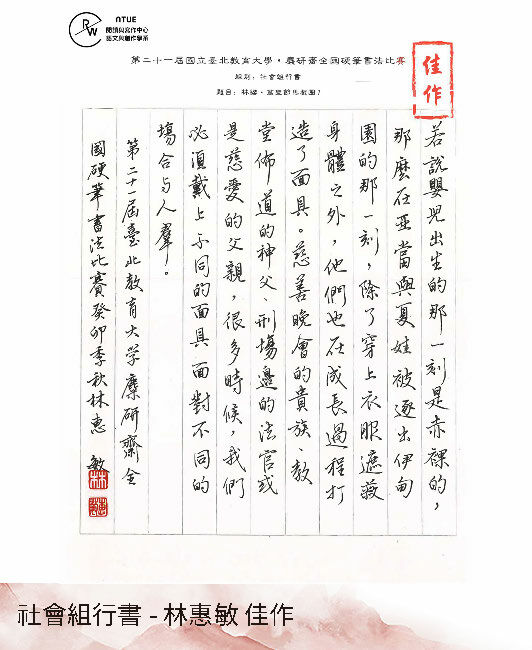 NTUE
RW
閱讀與寫作中心
語文與創作學系
第二十一屆國立臺北教育大學・麋研齋全國硬筆書法比賽
組別：社會組行書
佳作
若說嬰兒出生的那一刻是赤裸的，
那麼在亞當與夏娃被逐出伊甸
園的那一刻，除了穿上衣服遮蔽
身體之外，他們也在成長過程打
造了面具。慈善晚會的貴族、教
堂佈道的神父、刑場邊的法官或
是慈愛的父親，很多時候，我們
必須戴上不同的面具面對不同的
場合与人羣。
第二十一屆臺北教育大学麋研齋全
國硬筆書法比賽癸卯季秋林惠敏
社會組行書 - 林惠敏 佳作